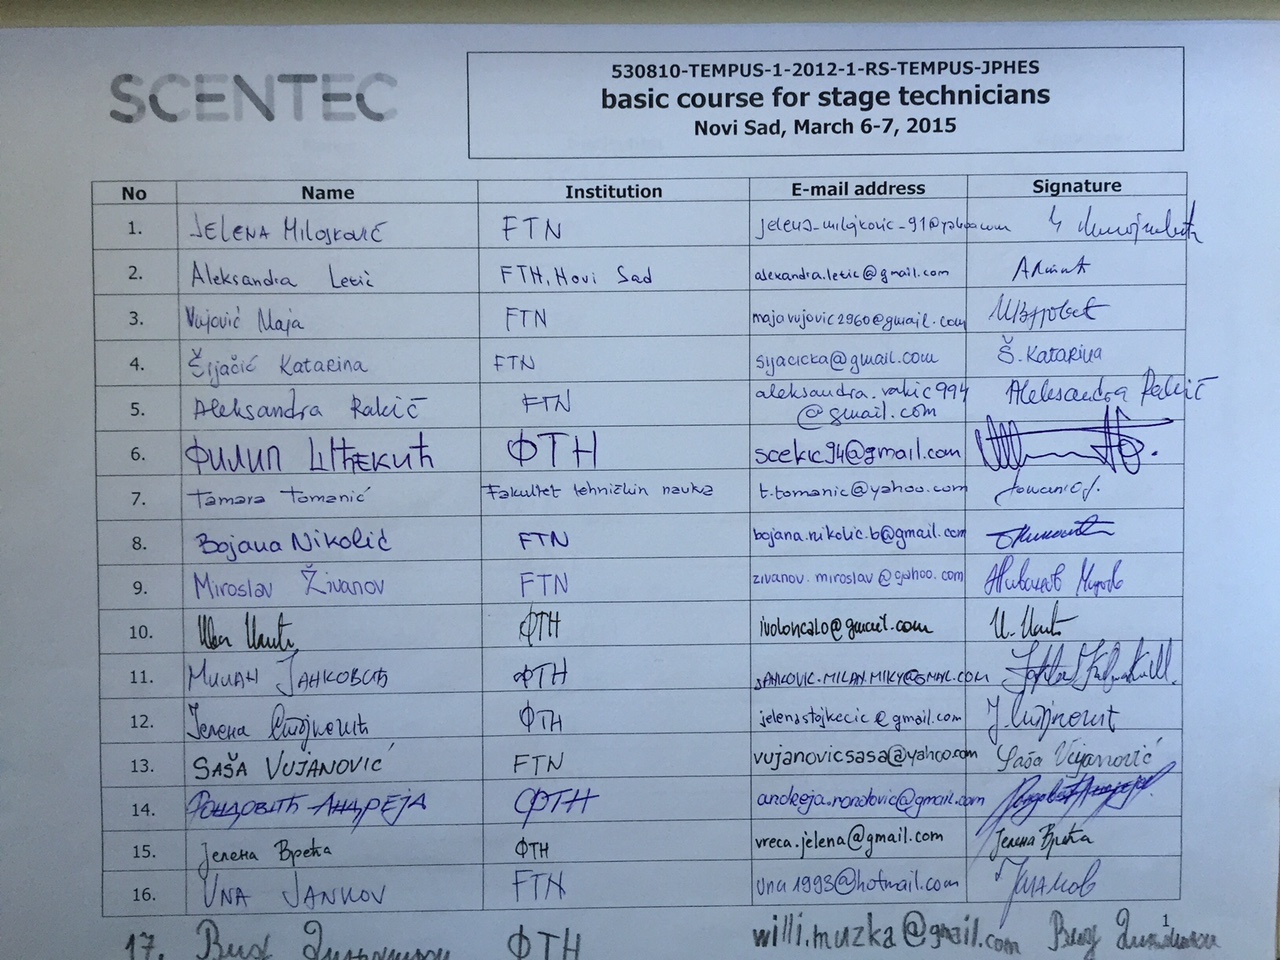 SCENTEC
530810-TEMPUS-1-2012-1-RS-TEMPUS-JPHES
basic course for stage technicians
Novi Sad, March 6-7, 2015
No Name Institution E-mail address Signature
1. Jelena Milojković FTN jelena_milojkovic_91@yahoo.com
2. Aleksandra Letić FTH, Novi Sad alexandra.letic@gmail.com
3. Vujović Maja FTN majavujovic2960@gmail.com
4. Šijačić Katarina FTN sijacicka@gmail.com Š. Katarina
5. Aleksandra Rakić FTN aleksandra.rakic994 Aleksandra Rakić
@gmail.com
6. Филип Шћекић ФТН scekic94@gmail.com
7. Tamara Tomanić Fakultet tehničkih nauka t.tomanic@yahoo.com
8. Bojana Nikolić FTN bojana.nikolic.b@gmail.com
9. Miroslav Živanov FTN zivanov.miroslav@yahoo.com Живанов
10. ФТН ivoloncalo@gmail.com
11. Милан Јанковић ФТН JANKOVIC.MILAN.MIKY@GMAIL.COM
12. Јелена ФТН jelenastojkecic@gmail.com Ј.
13. SAŠA VUJANOVIĆ FTN vujanovicsasa@yahoo.com Saša Vujanović
14. Рондовић Андреја ФТН andreja.rondovic@gmail.com
15. Јелена Врећа ФТН vreca.jelena@gmail.com Јелена Врећа
16. UNA JANKOV FTN una1993@hotmail.com
1
17. Вид ФТН willi.muzka@gmail.com Вид